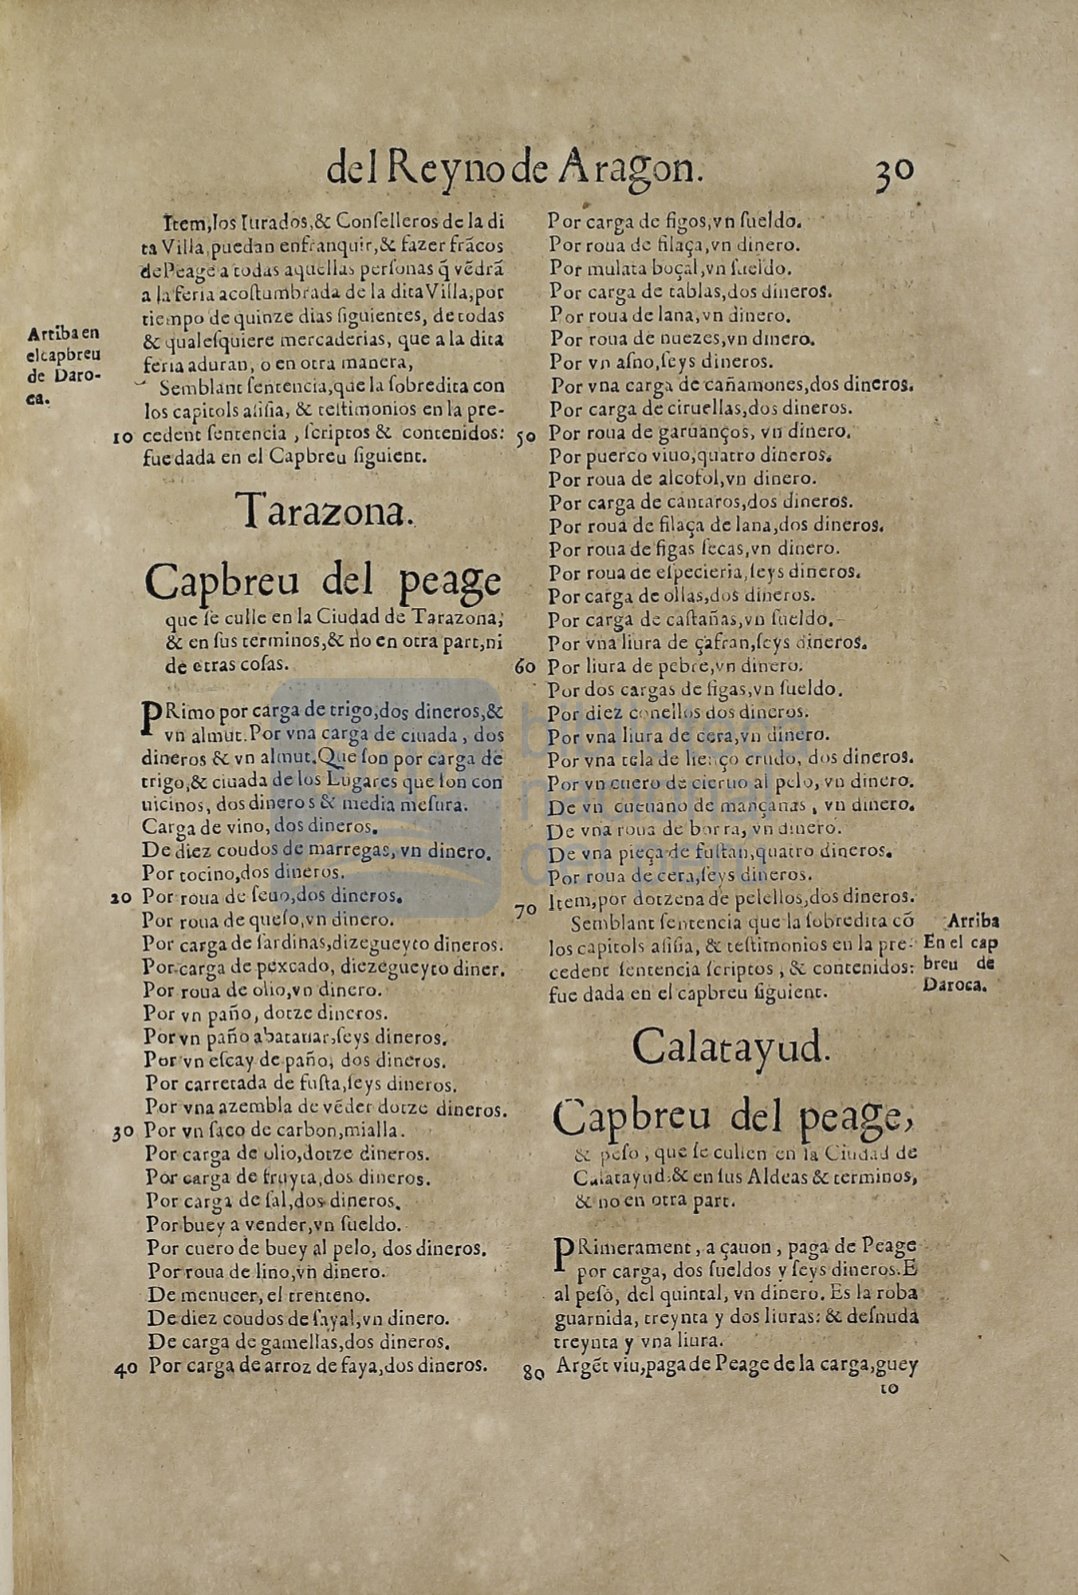 del Reyno de Aragon.
30
Item, los Iurados, & Conſelleros de la di
ta Villa, puedan enfranquir, & fazer frãcos
de Peage a todas aquellas perſonas q̃ vẽdrã
a la feria acoſtumbrada de la dita Villa, por
tiempo de quinze dias ſiguientes, de todas
& qualeſquiere mercaderias, que a la dita
feria aduran, o en otra manera,
Semblant ſentencia, que la ſobredita con
los capitols aſiſia, & teſtimonios en la pre-
10 cedent ſentencia, ſcriptos & contenidos:
fue dada en el Capbreu ſiguient.
Arriba en
el capbreu
de Daro-
ca.
Tarazona.
Capbreu del peage
que ſe culle en la Ciudad de Tarazona,
& en ſus terminos, & no en otra part, ni
de otras coſas.
PRimo por carga de trigo, dos dineros, &
vn almut. Por vna carga de ciuada, dos
dineros & vn almut. Que ſon por carga de
trigo, & ciuada de los Lugares que ſon con
uicinos, dos dineros & media meſura.
Carga de vino, dos dineros.
De diez coudos de marregas, vn dinero.
Por tocino, dos dineros.
20 Por roua de ſeuo, dos dineros.
Por roua de queſo, vn dinero.
Por carga de ſardinas, dizegueyto dineros.
Por carga de pexcado, diezegueyto diner.
Por roua de olio, vn dinero.
Por vn paño, dotze dineros.
Por vn paño abatanar, ſeys dineros.
Por vn eſcay de paño, dos dineros.
Por carretada de fuſta, ſeys dineros.
Por vna azembla de vẽder dotze dineros.
30 Por vn ſaco de carbon, mialla.
Por carga de olio, dotze dineros.
Por carga de fruyta, dos dineros.
Por carga de ſal, dos dineros.
Por buey a vender, vn ſueldo.
Por cuero de buey al pelo, dos dineros.
Por roua de lino, vn dinero.
De menucer, el trenteno.
De diez coudos de ſayal, vn dinero.
De carga de gamellas, dos dineros.
40 Por carga de arroz de faya, dos dineros.
Por carga de figos, vn ſueldo.
Por roua de filaça, vn dinero.
Por mulata boçal, vn ſueldo.
Por carga de tablas, dos dineros.
Por roua de lana, vn dinero.
Por roua de nuezes, vn dinero.
Por vn aſno, ſeys dineros.
Por vna carga de cañamones, dos dineros.
Por carga de ciruellas, dos dineros.
50 Por roua de garuanços, vn dinero.
Por puerco viuo, quatro dineros.
Por roua de alcofol, vn dinero.
Por carga de cantaros, dos dineros.
Por roua de filaça de lana, dos dineros.
Por roua de figas ſecas, vn dinero.
Por roua de eſpecieria, ſeys dineros.
Por carga de ollas, dos dineros.
Por carga de caſtañas, vn ſueldo.
Por vna liura de çafran, ſeys dineros.
60 Por liura de pebre, vn dinero.
Por dos cargas de figas, vn ſueldo.
Por diez conellos dos dineros.
Por vna liura de cera, vn dinero.
Por vna tela de lienço crudo, dos dineros.
Por vn cuero de cieruo al pelo, vn dinero.
De vn cueuano de mançanas, vn dinero.
De vna roua de borra, vn dinero.
De vna pieça de fuſtan, quatro dineros.
Por roua de cera, ſeys dineros.
70 Item, por dotzena de pelellos, dos dineros.
Semblant ſentencia que la ſobredita cõ
los capitols aſiſia, & teſtimonios en la pre-
cedent ſentencia ſcriptos, & contenidos:
fue dada en el capbreu ſiguient.
Arriba
En el cap
breu de
Daroca.
Calatayud.
Capbreu del peage,
& peſo, que ſe cullen en la Ciudad de
Calatayud, & en ſus Aldeas & terminos,
& no en otra part.
PRimerament, a çauon, paga de Peage
por carga, dos ſueldos y ſeys dineros. E
al peſo, del quintal, vn dinero. Es la roba
guarnida, treynta y dos liuras: & deſnuda
treynta y vna liura.
80 Argẽt viu, paga de Peage de la carga, guey
to